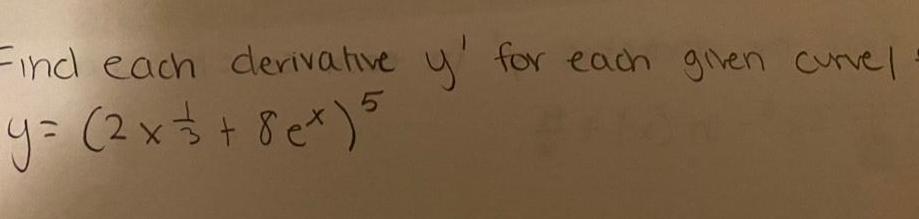 Find each derivative y' for each given curve!
y= (2x^{1/3} + 8e^x)^5